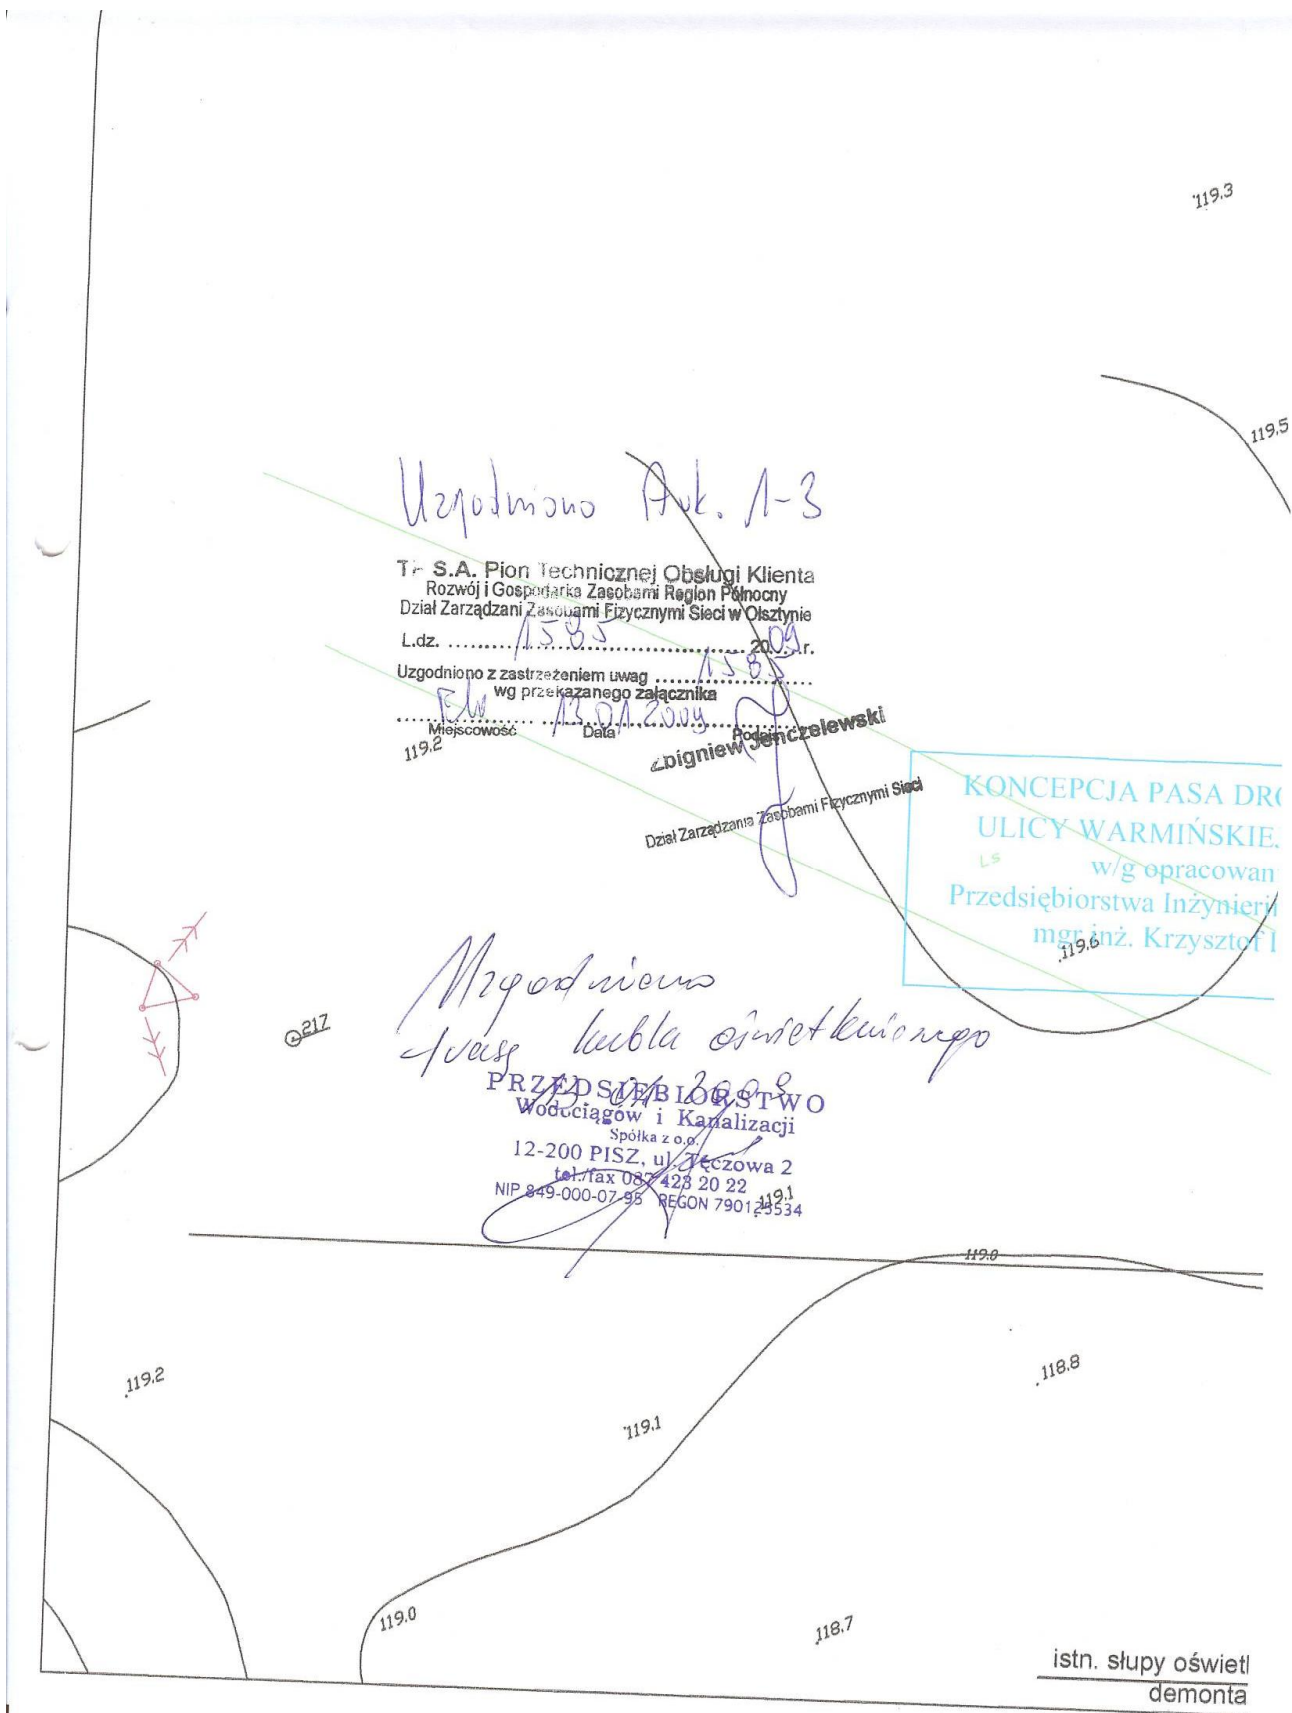 119.3
119.5
Uzgodniono Ark. 1-3
S.A. Pion Technicznej Obsługi Klienta
Rozwój i Gospodarka Zasobami Region Północny
Dział Zarządzani Zasobami Fizycznymi Sieci w Olsztynie
L.dz. 1585 2009 r.
Uzgodniono z zastrzeżeniem uwag 1585
wg przekazanego załącznika
13.01.2009
Miejscowość Data
119.2
Zbigniew Jenczelewski
Dział Zarządzania Zasobami Fizycznymi Sieci
KONCEPCJA PASA DRO
ULICY WARMIŃSKIE
LS
w/g opracowan
Przedsiębiorstwa Inżynierii
mgr inż. Krzysztof
119.6
217
Uzgodniono
trasę kabla oświetleniowego
13.01.2009
PRZEDSIĘBIORSTWO
Wodociągów i Kanalizacji
Spółka z o.o.
12-200 PISZ, ul. Tęczowa 2
tel./fax 087 423 20 22
NIP 849-000-07-95 REGON 790125534
119.1
119.0
119.2
118.8
119.1
119.0
118.7
istn. słupy oświetl
demonta